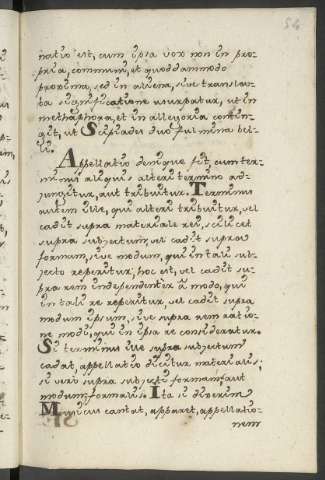 54
natio est, cum ipsa vox non in pro-
pria, communi, et quoddammodo
proxima, sed in aliena, sive transla-
ta significatione usurpatur, ut in
methaphora, et in allegoria contin-
git, ut Scipiades duo fulmina bel-
li.
Appellatio denique fit, cum ter-
minus aliquis alteri termino ad-
jungitur, aut tribuitur. Terminus
autem ille, qui alteri tribuitur, vel
cadit supra materiale rei, scilicet
supra subjectum; vel cadit supra
formam, sive modum, qui in tali sub-
jecto reperitur, hoc est, vel cadit su-
pra rem independenter a modo, qui
in tali re reperitur, vel cadit supra
modum ipsum, sive supra rem ratio-
ne modi, qui in ipsa re consideratur.
Si terminus ille supra subjectum
cadat, appellatio dicitur materialis;
si vero supra subjecti formam, aut
modum formalis. Ita si dixerim
Musicus cantat, apparet, appellatio-
nem